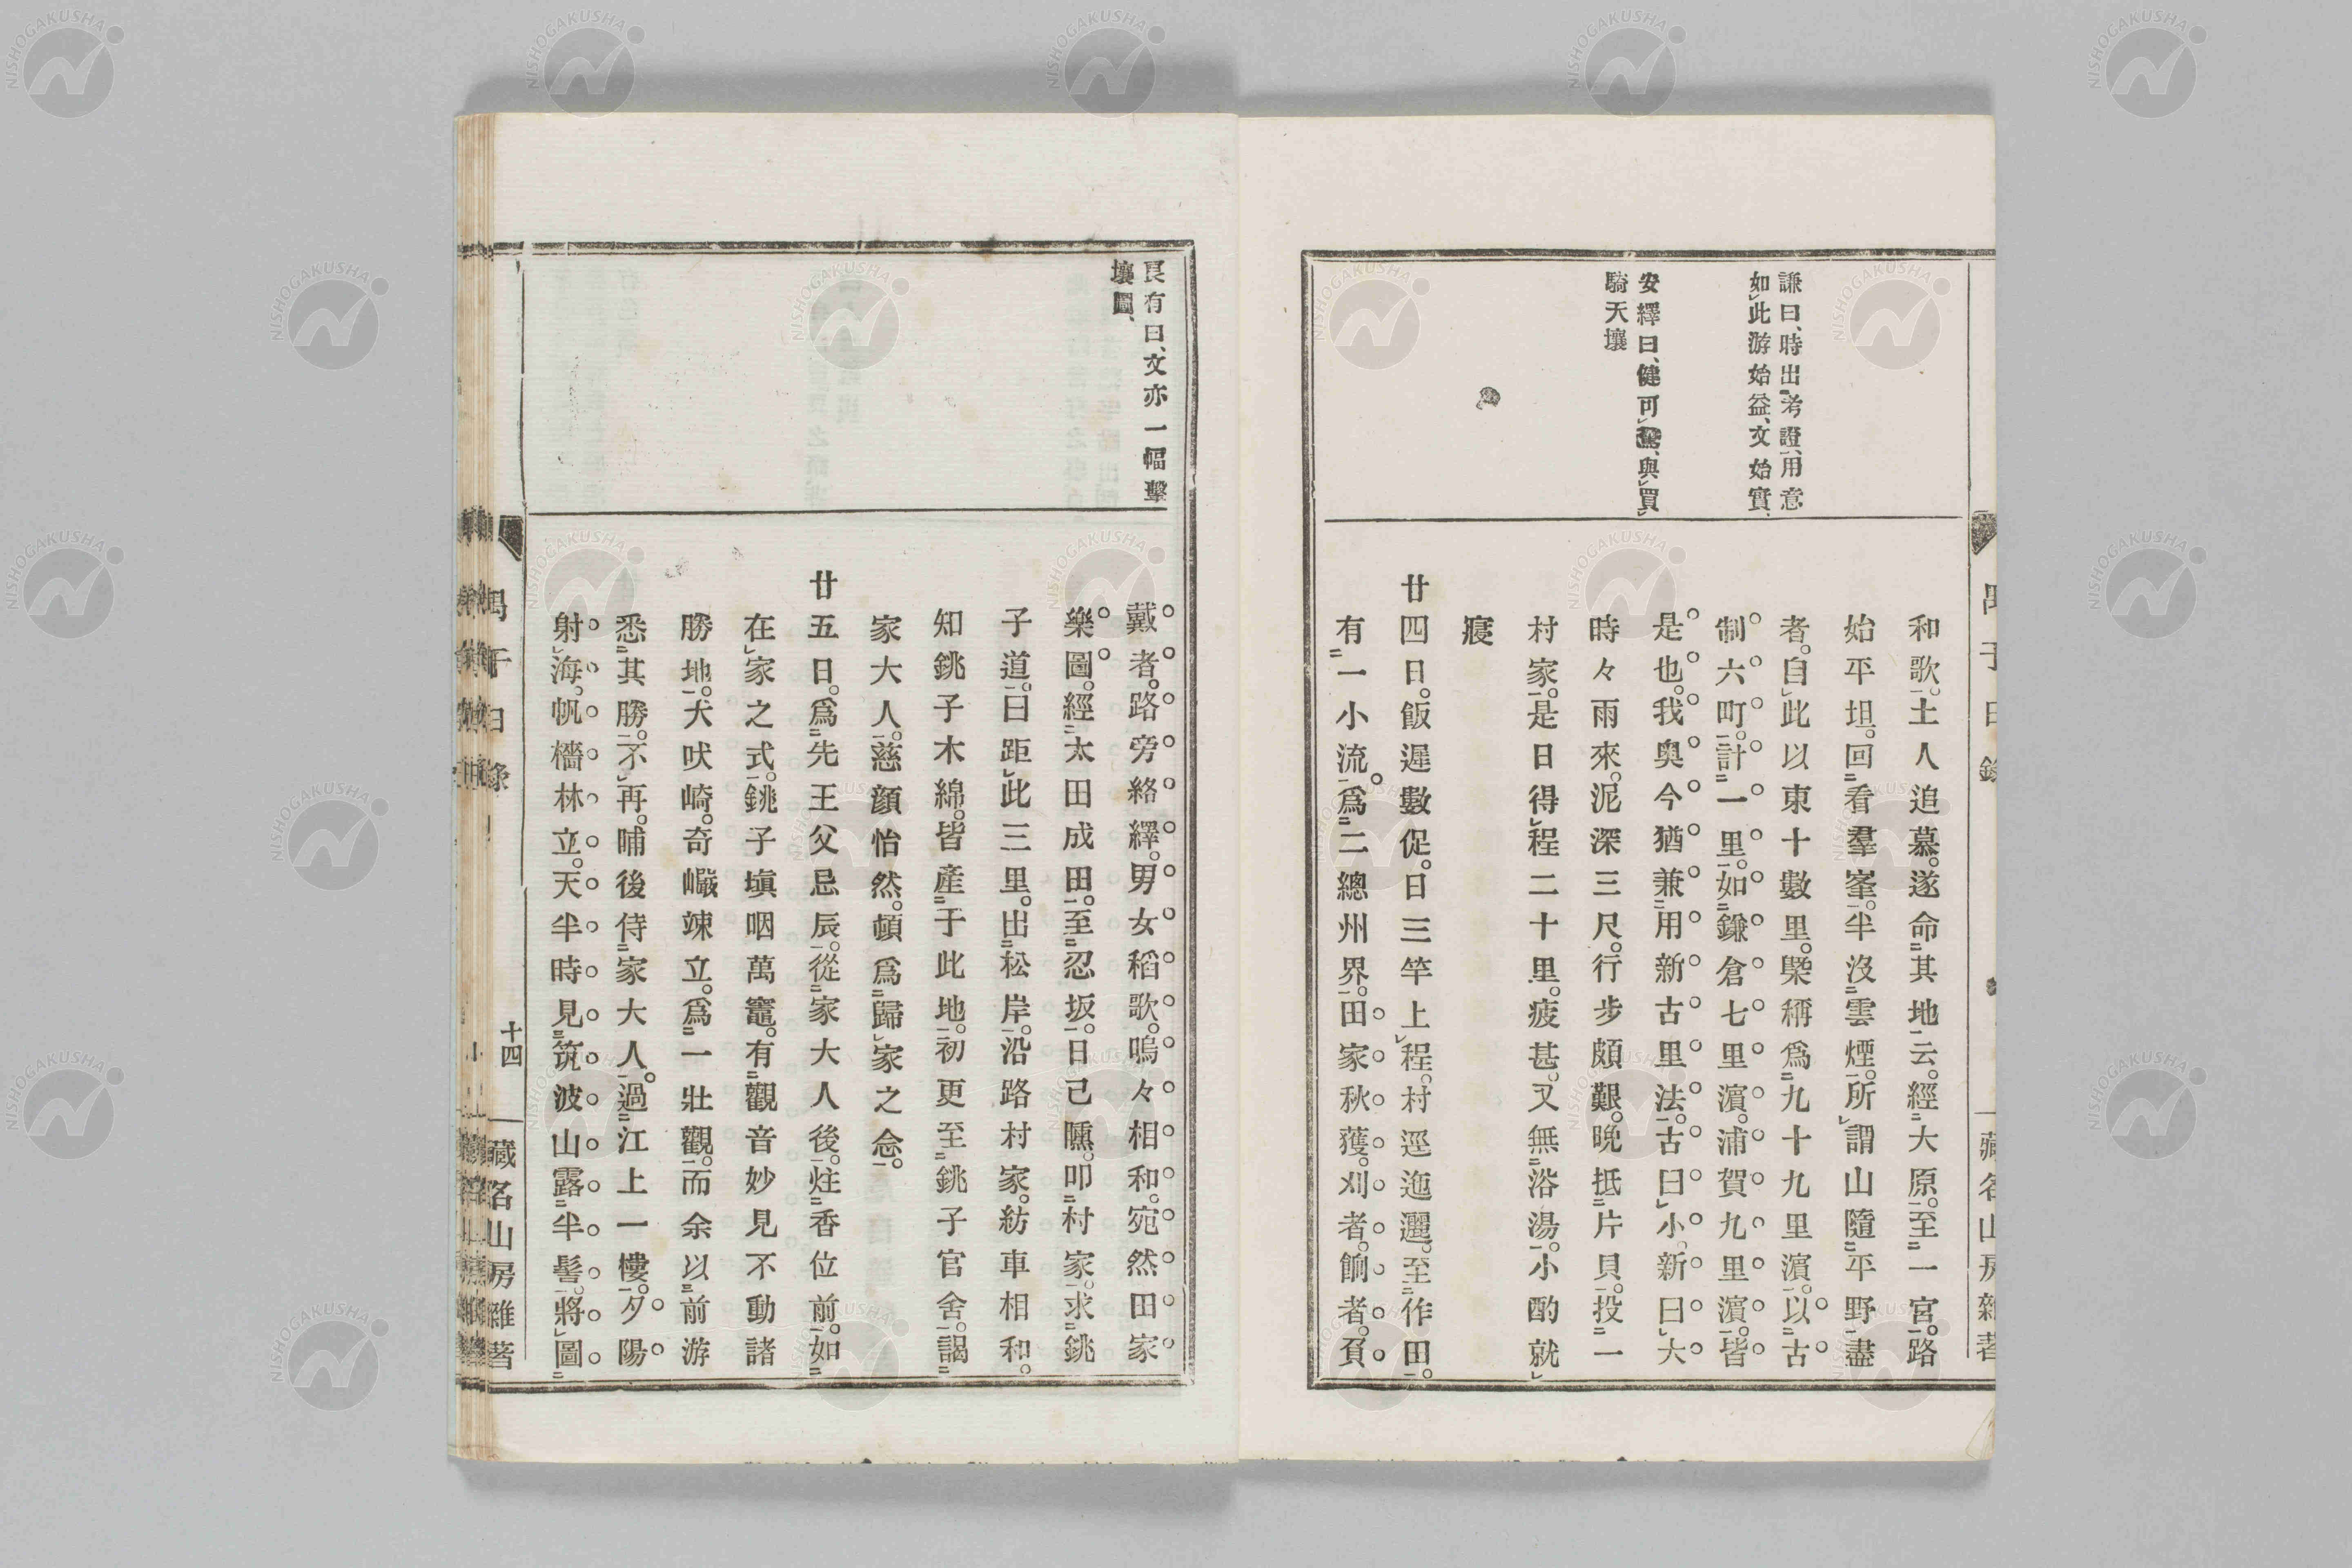 謙曰、時出考證、用意
如此游始益、文始實、
安繹曰、健可驚、與買
騎天壤
和歌。土人追慕。遂命其地云。經大原。至一宮。路
始平坦。回看羣峯。半沒雲煙。所謂山隨平野盡
者。自此以東十數里。槩稱爲九十九里濱。以古
制六町。計一里。如鎌倉七里濱。浦賀九里濱。皆
是也。我奥今猶兼用新古里法。古曰小。新曰大
時々雨來。泥深三尺。行步頗艱。晚抵片貝。投一
村家。是日得程二十里。疲甚。又無浴湯。小酌就
寢
廿四日。飯遲數促。日三竿上程。村逕迤邐。至作田。
有一小流。爲二總州界。田家秋獲。刈者。餉者。負
良有曰、文亦一幅擊
壤圖、
戴者。路旁絡繹。男女稻歌。嗚々相和。宛然田家
樂圖。經太田成田。至忍坂。日已曛。叩村家。求銚
子道。曰距此三里。出松岸。沿路村家。紡車相和。
知銚子木綿。皆產于此地。初更至銚子官舍。謁
家大人。慈顏怡然。頓爲歸家之念。
廿五日。爲先王父忌辰。從家大人後。炷香位前。如
在家之式。銚子塡咽萬竈。有觀音妙見不動諸
勝地。犬吠崎。奇巖竦立。爲一壯觀。而余以前游
悉其勝。不再。晡後侍家大人。過江上一樓。夕陽
射海。帆檣林立。天半時見筑波山露半髻。將圖
十四
藏名山房雜著